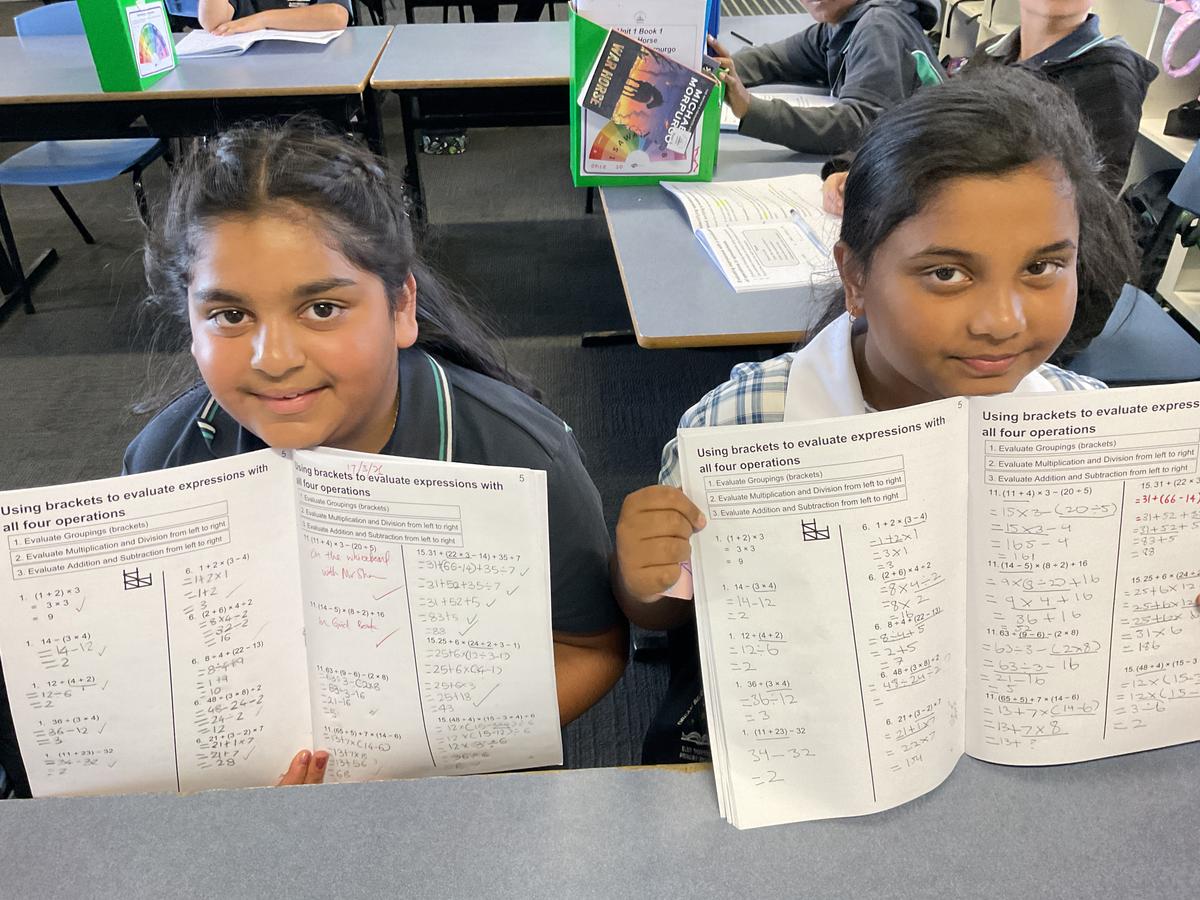 Unit 1 Book 1
Horse
WAR HORSE
MICHAEL
MORPURGO
5
Using brackets to evaluate expressions with
all four operations
1. Evaluate Groupings (brackets)
2. Evaluate Multiplication and Division from left to right
3. Evaluate Addition and Subtraction from left to right
1. (1 + 2) × 3
= 3 × 3
= 9
1. 14 – (3 × 4)
= 14 - 12
= 2
1. 12 ÷ (4 + 2)
= 12 ÷ 6
= 2
1. 36 ÷ (3 × 4)
= 36 ÷ 12
= 3
1. (11 + 23) – 32
= 34 - 32
= 2
6. 1 + 2 × (3 – 4)
= 1 + 2 × 1
= 1 + 2
= 3
6. (2 + 6) × 4 ÷ 2
= 8 × 4 ÷ 2
= 32 ÷ 2
= 16
6. 8 ÷ 4 + (22 – 13)
= 1 + 9
= 10
6. 48 ÷ (3 × 8) ÷ 2
= 48 - 24 - 2
= 24 - 2
= 12
6. 21 + (3 – 2) × 7
= 21 + 1 × 7
= 21 + 7
= 28
5
17/3/21
Using brackets to evaluate expressions with
all four operations
1. Evaluate Groupings (brackets)
2. Evaluate Multiplication and Division from left to right
3. Evaluate Addition and Subtraction from left to right
11. (11 + 4) × 3 – (20 ÷ 5)
On the whiteboard
with Mr
11. (14 – 5) × (8 ÷ 2) + 16
in Book
11. 63 ÷ (9 – 6) – (2 × 8)
= 63 ÷ 3 - (2×8)
= 21 - 16
= 5
11. (65 ÷ 5) + 7 × (14 – 6)
= 13 + 7 × (14-6)
= 13 + 7 × 8
= 13 + 56
= 68
15. 31 + (22 × 3 – 14) + 35 ÷ 7
= 31 + (66-14) + 35 ÷ 7
= 31 + 52 + 35 ÷ 7
= 31 + 52 + 5
= 83 + 5
= 88
15. 25 + 6 × (24 ÷ 2 ÷ 3 – 1)
= 25 + 6 × (12 ÷ 3 - 1)
= 25 + 6 × (4-1)
= 25 + 6 × 3
= 25 + 18
= 43
15. (48 ÷ 4) × (15 – 3 × 4) ÷ 6
= 12 × (15-12) ÷ 6
= 12 × 3 ÷ 6
= 36 ÷ 6
5
Using brackets to evaluate expressions with
all four operations
1. Evaluate Groupings (brackets)
2. Evaluate Multiplication and Division from left to right
3. Evaluate Addition and Subtraction from left to right
1. (1 + 2) × 3
= 3 × 3
= 9
1. 14 – (3 × 4)
= 14 - 12
= 2
1. 12 ÷ (4 + 2)
= 12 ÷ 6
= 2
1. 36 ÷ (3 × 4)
= 36 ÷ 12
= 3
1. (11 + 23) – 32
34 - 32
= 2
6. 1 + 2 × (3 – 4)
= 1 + 2 × 1
= 3 × 1
= 3
6. (2 + 6) × 4 ÷ 2
= 8 × 4 ÷ 2
= 8 × 2
6. 8 ÷ 4 + (22 – 13)
= 8 ÷ 4 + 5
= 2 + 5
= 7
6. 48 ÷ (3 × 8) ÷ 2
= 48 ÷ 24 ÷ 2
6. 21 + (3 – 2) × 7
= 21 + 1 × 7
= 22 × 7
= 154
Using brackets to evaluate express
all four operations
1. Evaluate Groupings (brackets)
2. Evaluate Multiplication and Division from left to right
3. Evaluate Addition and Subtraction from left to right
11. (11 + 4) × 3 – (20 ÷ 5)
= 15 × 3 - (20 ÷ 5)
= 15 × 3 - 4
= 165 - 4
= 161
11. (14 – 5) × (8 ÷ 2) + 16
= 9 × (8 ÷ 2) + 16
= 9 × 4 + 16
= 36 + 16
= 52
11. 63 ÷ (9 – 6) – (2 × 8)
= 63 ÷ 3 - (2×8)
= 63 ÷ 3 - 16
= 21 - 16
= 5
11. (65 ÷ 5) + 7 × (14 – 6)
= 13 + 7 × (14-6)
= 13 + 7 × 8
= 13 + ?
15. 31 + (22 × 3
= 31 + (66 - 14)
= 31 + 52 +
= 31 + 52 +
= 83 + 5
= 88
15. 25 + 6 × (24
= 25 + 6 × 12
= 25 + 6 × 12
= 25 + 6 ×
= 31 × 6
= 186
15. (48 ÷ 4) × (15 – 3
= 12 × (15 - 3
= 12 × (15 -
= 3 ÷ 6
= 2